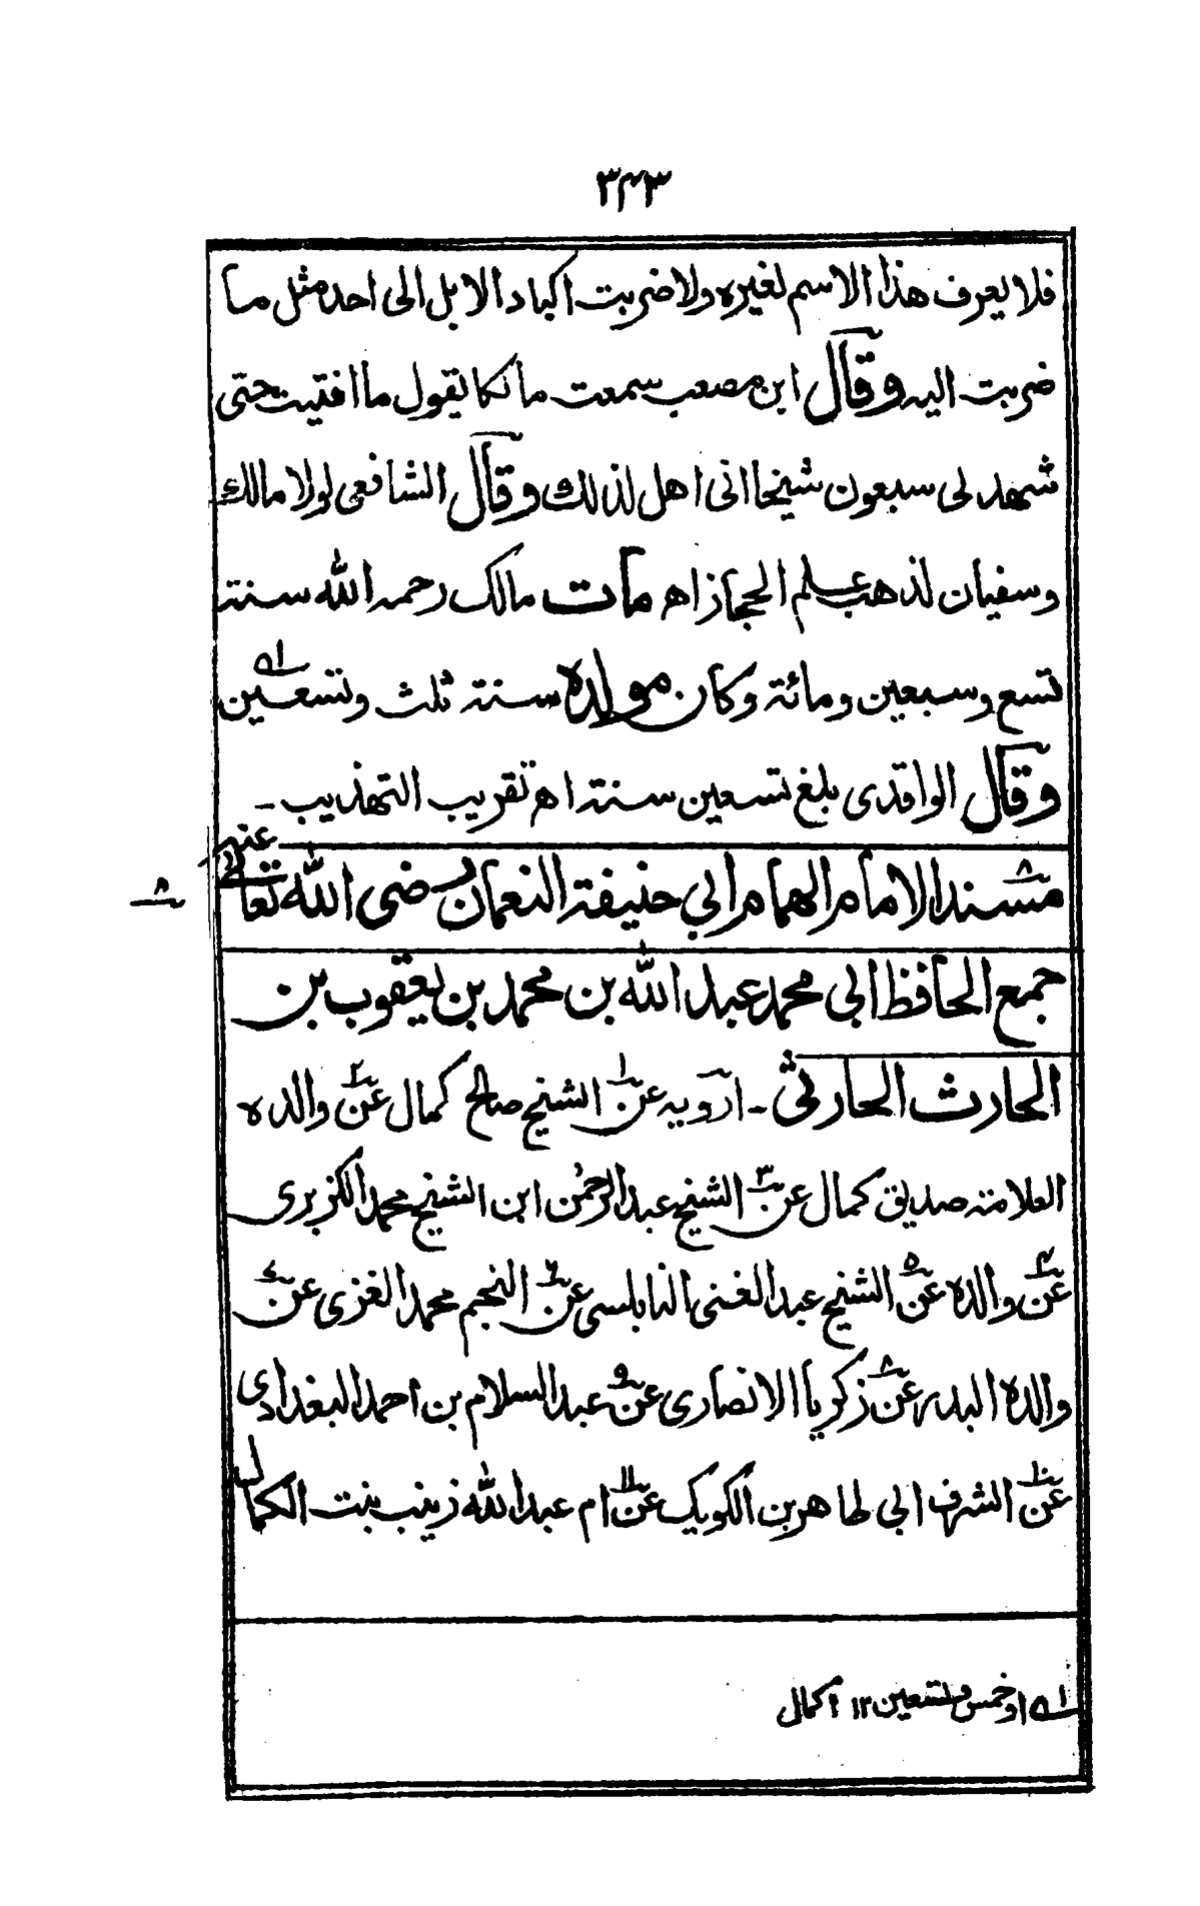 ٣٤٣
فلا يعرف هذا الاسم لغيره ولا ضربت اكباد الابل الى احد مثل ما
ضربت اليه وقال ابن مصعب سمعت مالكا يقول ما افتيت حتى
شهد لى سبعون شيخا انى اهل لذلك وقال الشافعى لولا مالك
وسفيان لذهب علم الحجاز اه مات مالك رحمه الله سنة
تسع وسبعين ومائة وكان مولده سنة ثلث وتسعين ا؎
وقال الواقدى بلغ تسعين سنة اه تقريب التهذيب ـ
٨ مسند الامام الهمام ابي حنيفة النعمان رضى الله تعالى عنه
٨
جمع الحافظ ابي محمد عبد الله بن محمد بن يعقوب بن
الحارث الحارثى ـ ارويه عن ١ الشيخ صالح كمال عن ٢ والده
العلامة صديق كمال عن ٣ الشيخ عبد الرحمن ابن الشيخ محمد الكزبرى
عن ٤ والده عن ٥ الشيخ عبد الغنى النابلسى عن ٦ النجم محمد الغزى عن ٧
والده البدر عن ٨ زكريا الانصارى عن ٩ عبد السلام بن احمد البغدادى
عن ١٠ الشرف ابى طاهر بن الكويك عن ١١ ام عبد الله زينب بنت الكمال
ا؎ او خمس وتسعين ١٢ اكمال